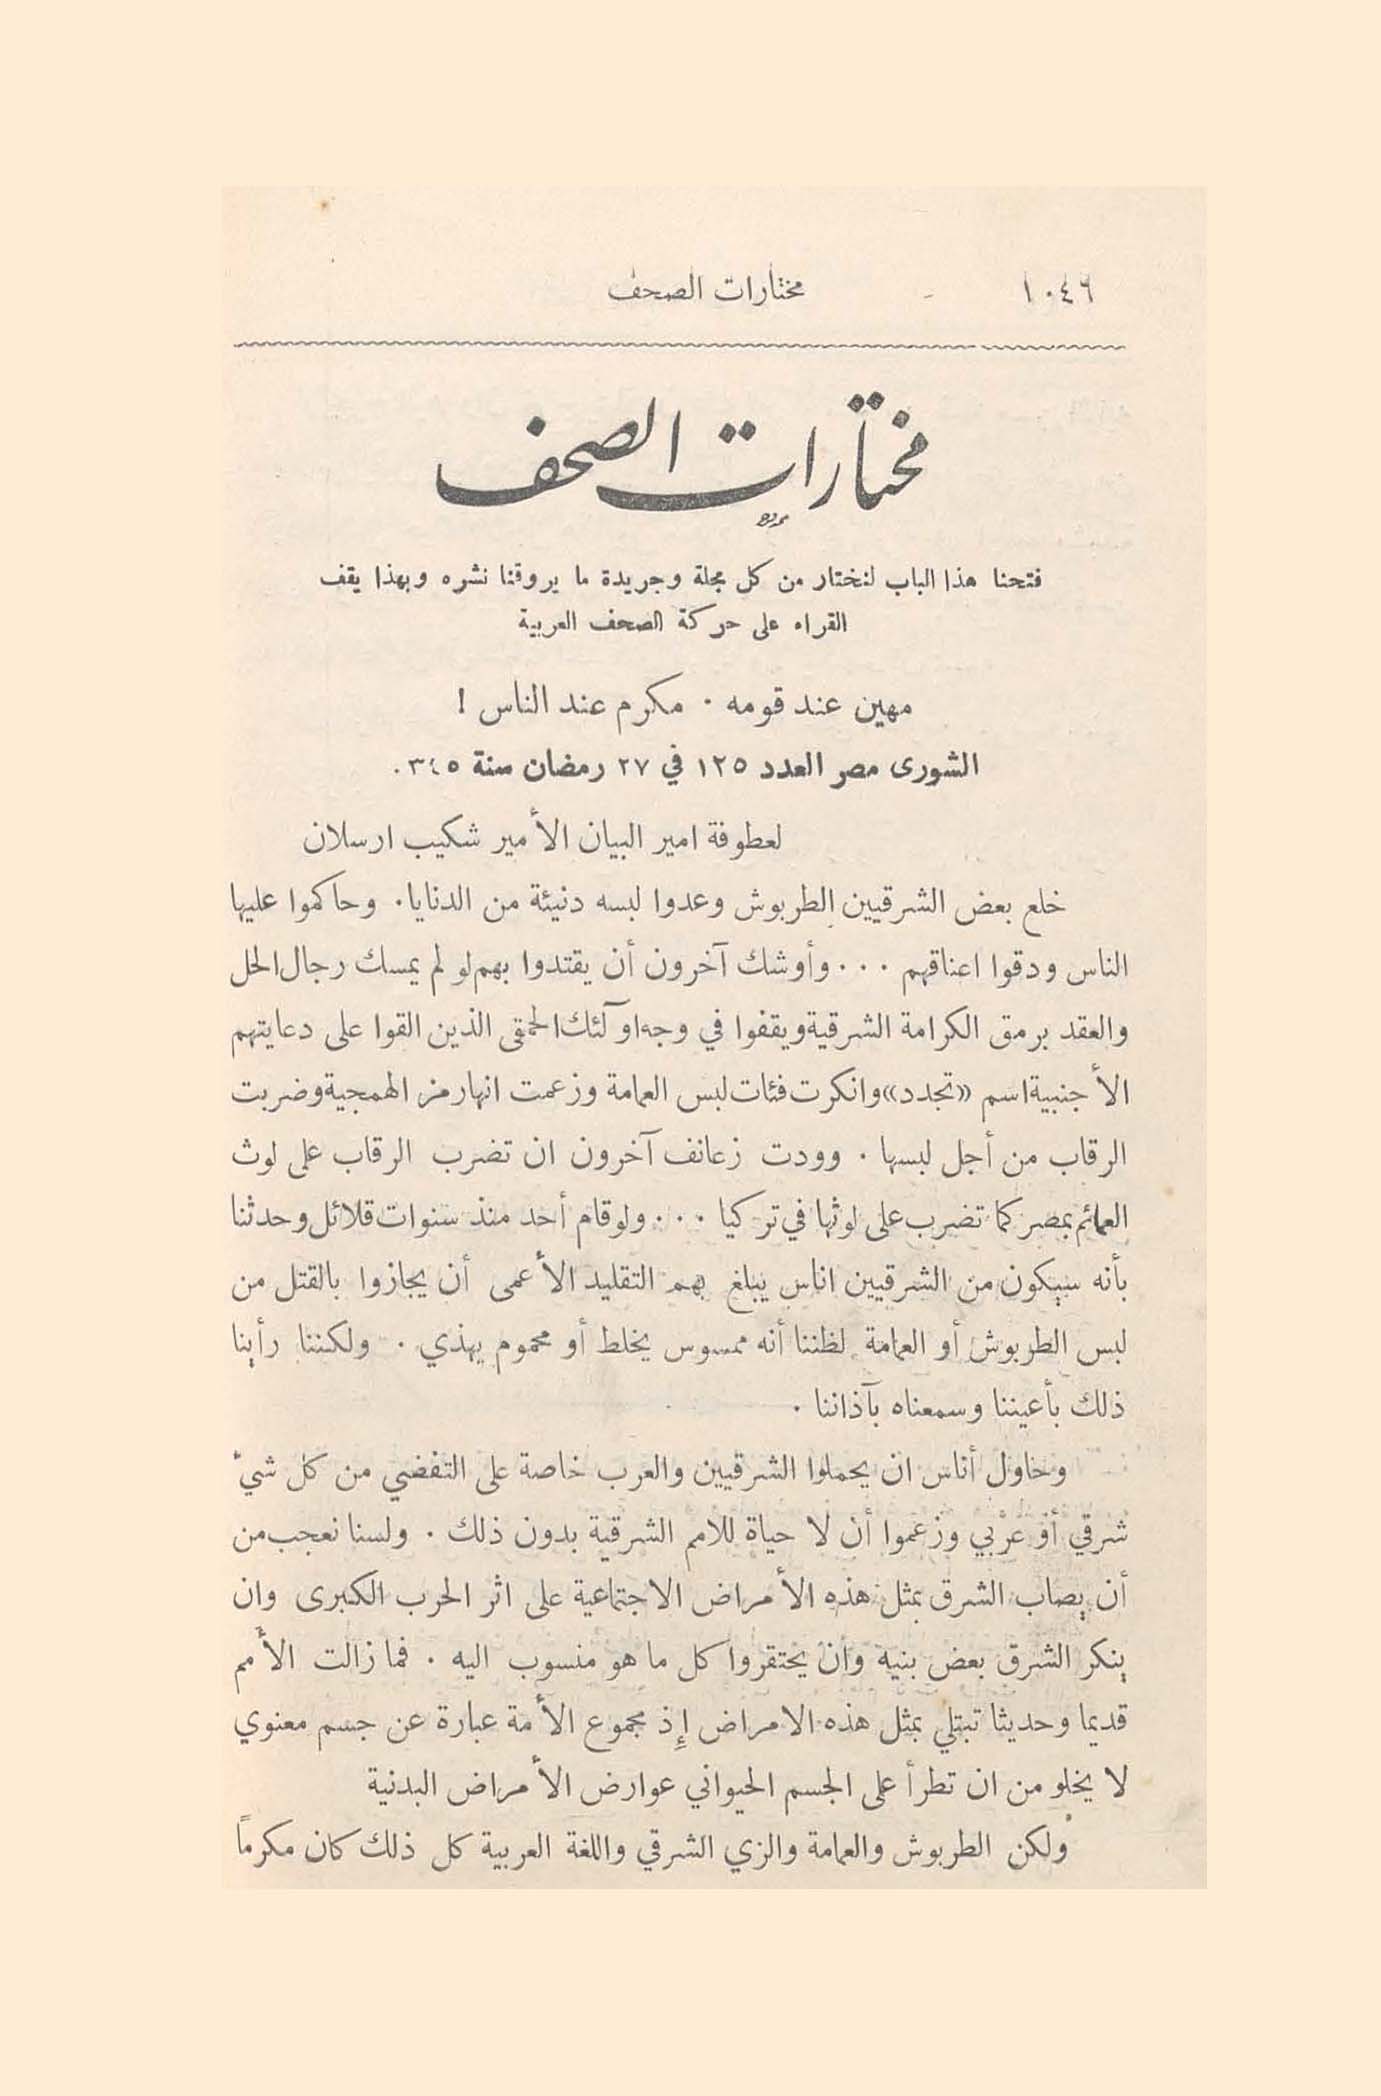 ١٠٤٦ مختارات الصحف
مختارات الصحف
فتحنا هذا الباب لنختار من كل مجلة وجريدة ما يروقنا نشره وبهذا يقف
القراء على حركة الصحف العربية
مهين عند قومه . مكرم عند الناس !
الشورى مصر العدد ١٢٥ في ٢٧ رمضان سنة ٣٤٥.
لعطوفة امير البيان الأمير شكيب ارسلان
خلع بعض الشرقيين الطربوش وعدوا لبسه دنيئة من الدنايا. وحاكموا عليها
الناس ودقوا اعناقهم ... وأوشك آخرون أن يقتدوا بهم لو لم يمسك رجال الحل
والعقد برمق الكرامة الشرقية ويقفوا في وجه اولئك الحمقى الذين القوا على دعايتهم
الأجنبية اسم «تجدد» وانكرت فئات لبس العمامة وزعمت انها رمز الهمجية وضربت
الرقاب من أجل لبسها . وودت زعانف آخرون ان تضرب الرقاب على لوث
العمائم بمصر كما تضرب على لوثها في تركيا ... ولو قام أحد منذ سنوات قلائل وحدثنا
بأنه سيكون من الشرقيين اناس يبلغ بهم التقليد الأعمى أن يجازوا بالقتل من
لبس الطربوش أو العمامة لظننا أنه ممسوس يخلط أو محموم يهذي . ولكننا رأينا
ذلك بأعيننا وسمعناه بآذاننا .
وحاول أناس ان يحملوا الشرقيين والعرب خاصة على التفضي من كل شيء
شرقي أو عربي وزعموا أن لا حياة للامم الشرقية بدون ذلك . ولسنا نعجب من
أن يصاب الشرق بمثل هذه الأمراض الاجتماعية على اثر الحرب الكبرى وان
ينكر الشرق بعض بنيه وان يحتقروا كل ما هو منسوب اليه . فما زالت الأمم
قديما وحديثا تبتلي بمثل هذه الامراض إذ مجموع الأمة عبارة عن جسم معنوي
لا يخلو من ان تطرأ على الجسم الحيواني عوارض الأمراض البدنية
ولكن الطربوش والعمامة والزي الشرقي واللغة العربية كل ذلك كان مكرماً